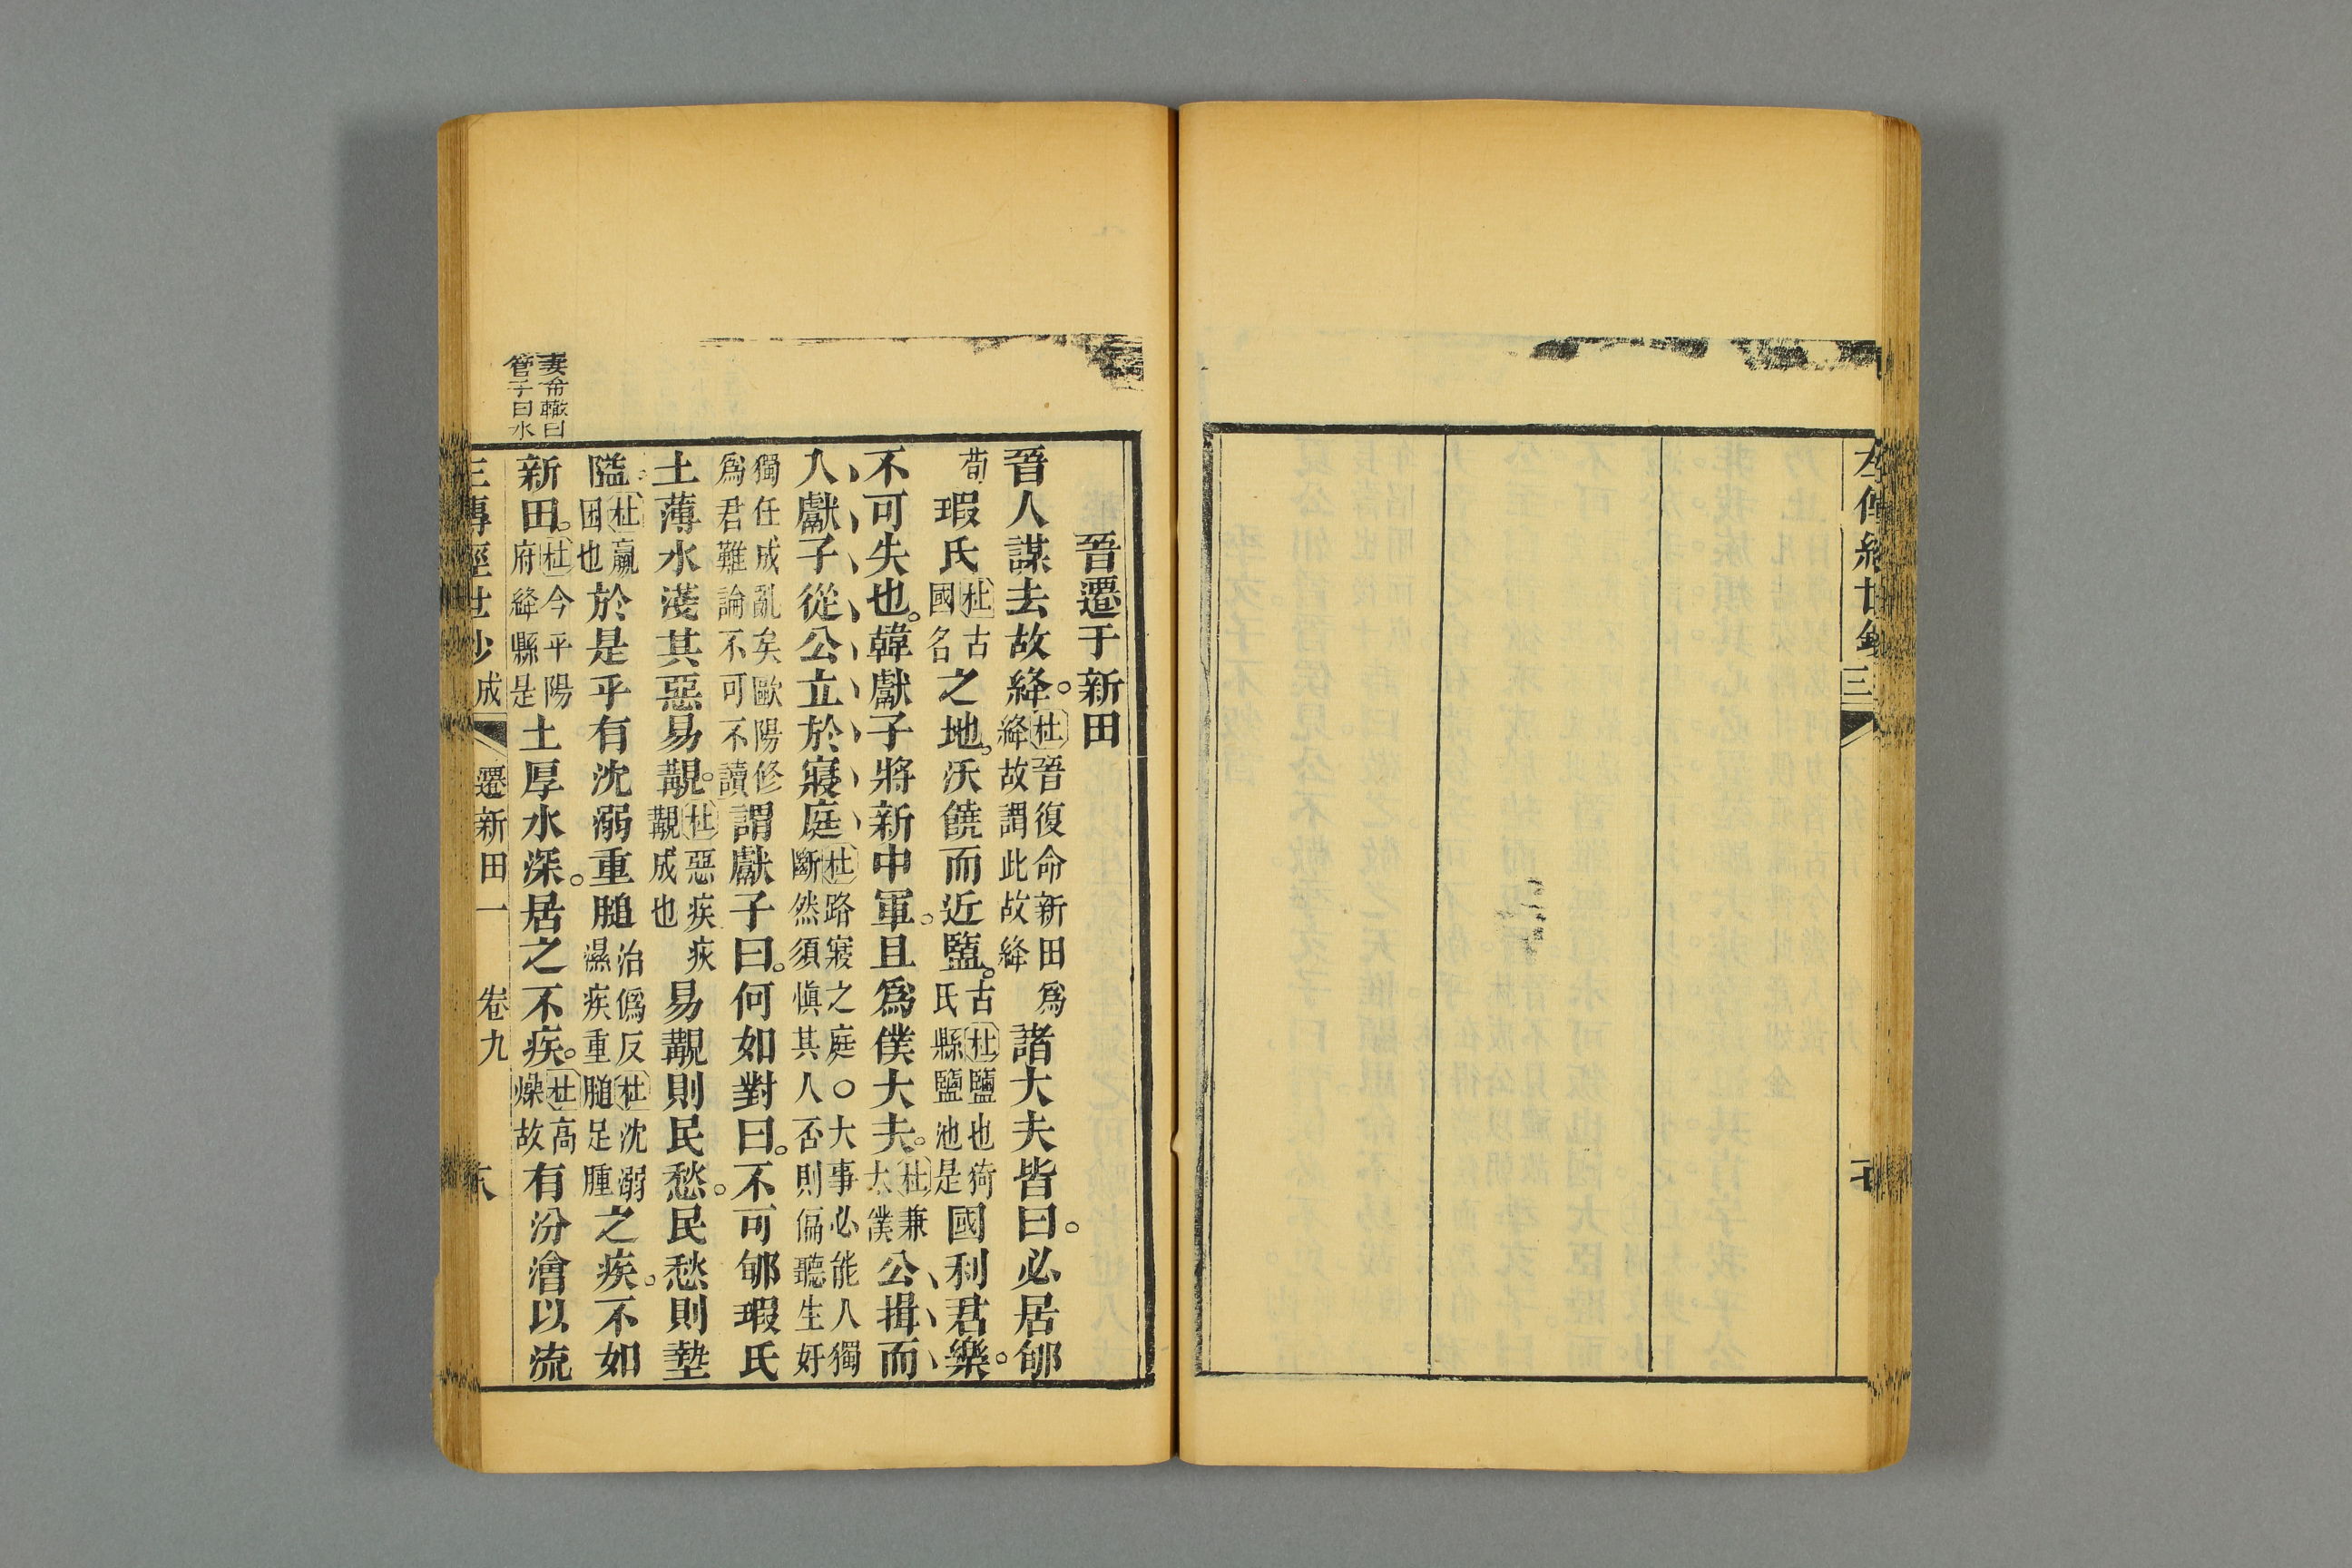 左傳經世鈔
三
晉遷于新田
晉人謀去故絳。杜晉復命新田爲絳故謂此故絳諸大夫皆曰。必居郇
荀瑕氏杜古國名之地。沃饒而近盬。古杜鹽也猗氏縣鹽池是國利君樂。
不可失也。韓獻子將新中軍。且爲僕大夫。杜兼大僕公揖而
入獻子從公立於寢庭杜路寢之庭○大事必能人獨斷然須慎其人否則偏聽生奸
獨任成亂矣歐陽修爲君難論不可不讀謂獻子曰。何如對曰。不可郇瑕氏
土薄水淺其惡易覯。杜惡疾疢覯成也易覯則民愁。民愁則墊
隘。杜羸困也於是乎有沈溺重膇治僞反杜沈溺濕疾重膇足腫之疾。不如
新田。杜今平陽府絳縣是土厚水深。居之不疾。杜高燥故有汾澮以流
妻命轍曰
管子曰水
左傳經世鈔 成 遷新田一 卷九